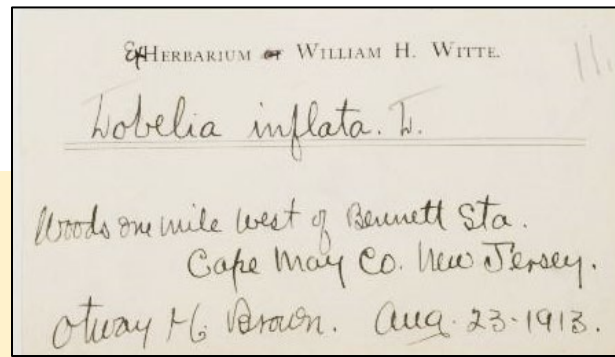 Ex HERBARIUM OF WILLIAM H. WITTE.
11.
Lobelia inflata. L.
Woods one mile west of Bennett Sta.
Cape May Co. New Jersey.
Otway H. Brown. Aug. 23-1913.